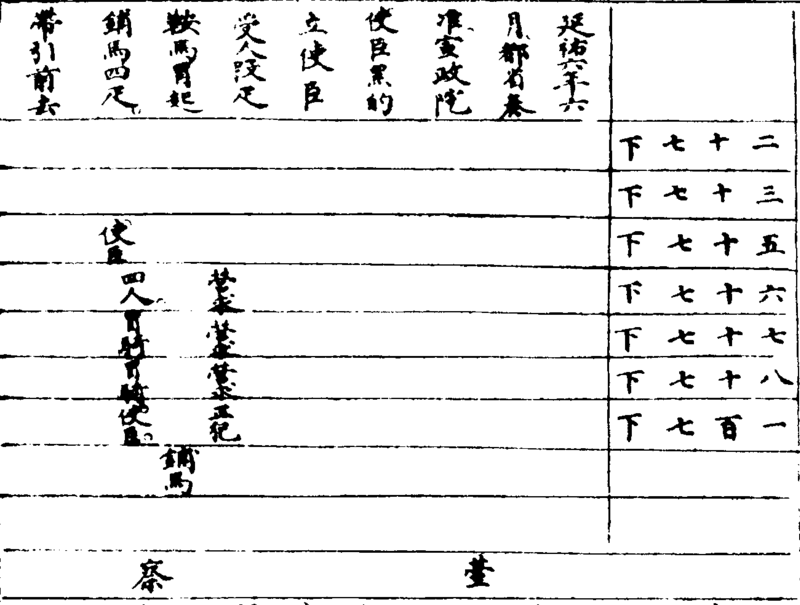 二十七下
三十七下
五十七下
六十七下
七十七下
八十七下
一百七下
延祐六年六
月都省奏
准宣政院
使臣黑的
立使臣
受人段疋
鞍馬冒起
鋪馬四疋
帶引前去
營求營求營求
鋪馬
使臣
四人冒騎冒騎使臣
臺察